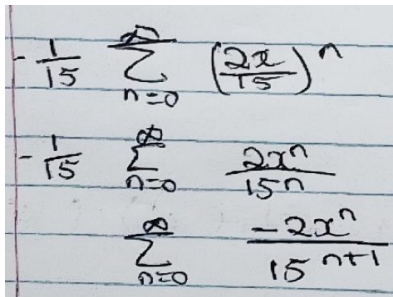 -\frac{1}{15} \sum_{n=0}^{\infty} \left(\frac{2x}{15}\right)^n
-\frac{1}{15} \sum_{n=0}^{\infty} \frac{2x^n}{15^n}
\sum_{n=0}^{\infty} \frac{-2x^n}{15^{n+1}}